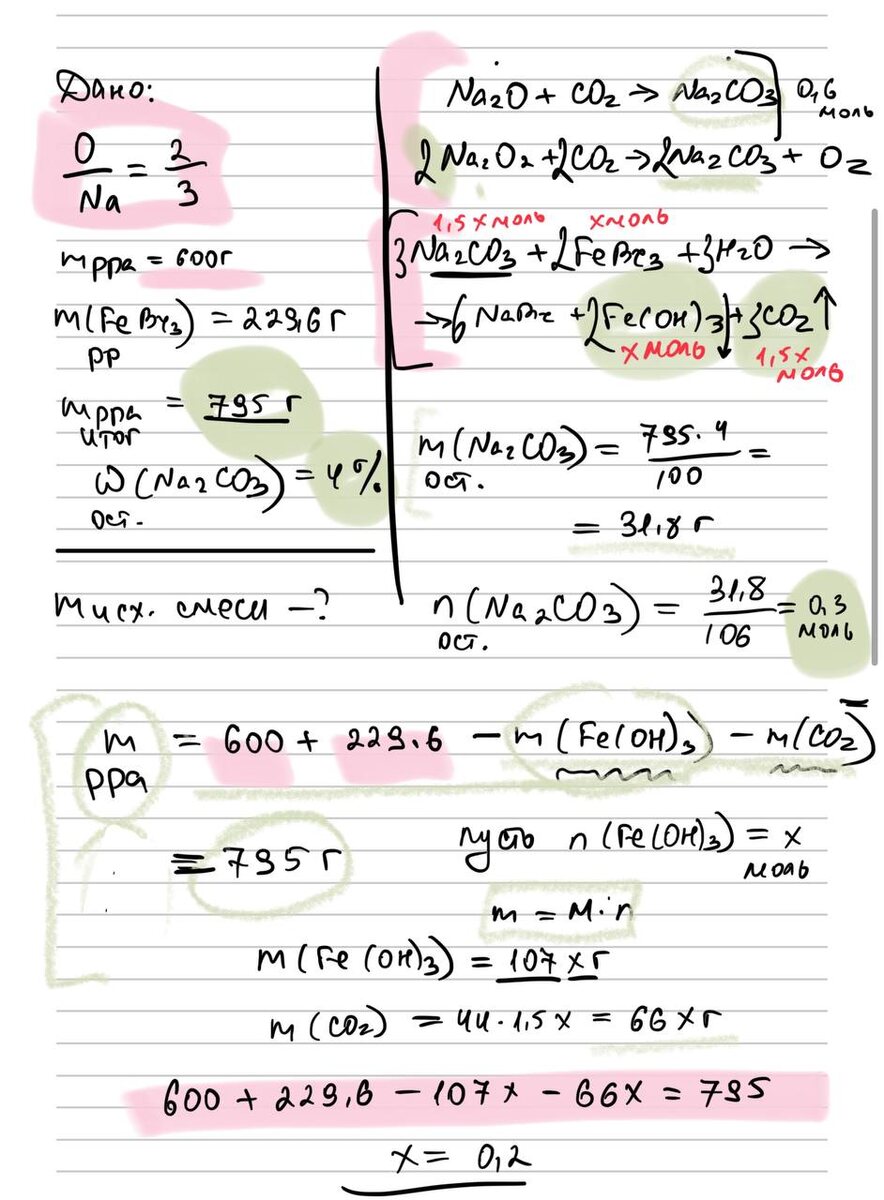 Дано:
O/Na = 2/3
m рра = 600г
m(FeBr3) = 229,6 г
рр
m рра = 795 г
итог
ω(Na2CO3) = 4%
ост.
m исх. смеси –?
Na2O + CO2 → Na2CO3] 0,6 моль
2Na2O2 + 2CO2 → 2Na2CO3 + O2
1,5 x моль x моль
3Na2CO3 + 2FeBr3 + 3H2O →
→ 6 NaBr + 2Fe(OH)3↓ + 3CO2↑
x моль 1,5 x моль
m(Na2CO3) = 795·4/100 =
ост.
= 31,8 г
n(Na2CO3) = 31,8/106 = 0,3 моль
ост.
m = 600 + 229.6 – m(Fe(OH)3) – m(CO2) =
рра
= 795 г пусть n(Fe(OH)3) = x
моль
m = M·n
m(Fe(OH)3) = 107 x г
m(CO2) = 44·1,5 x = 66 x г
600 + 229,6 – 107x – 66x = 795
x = 0,2